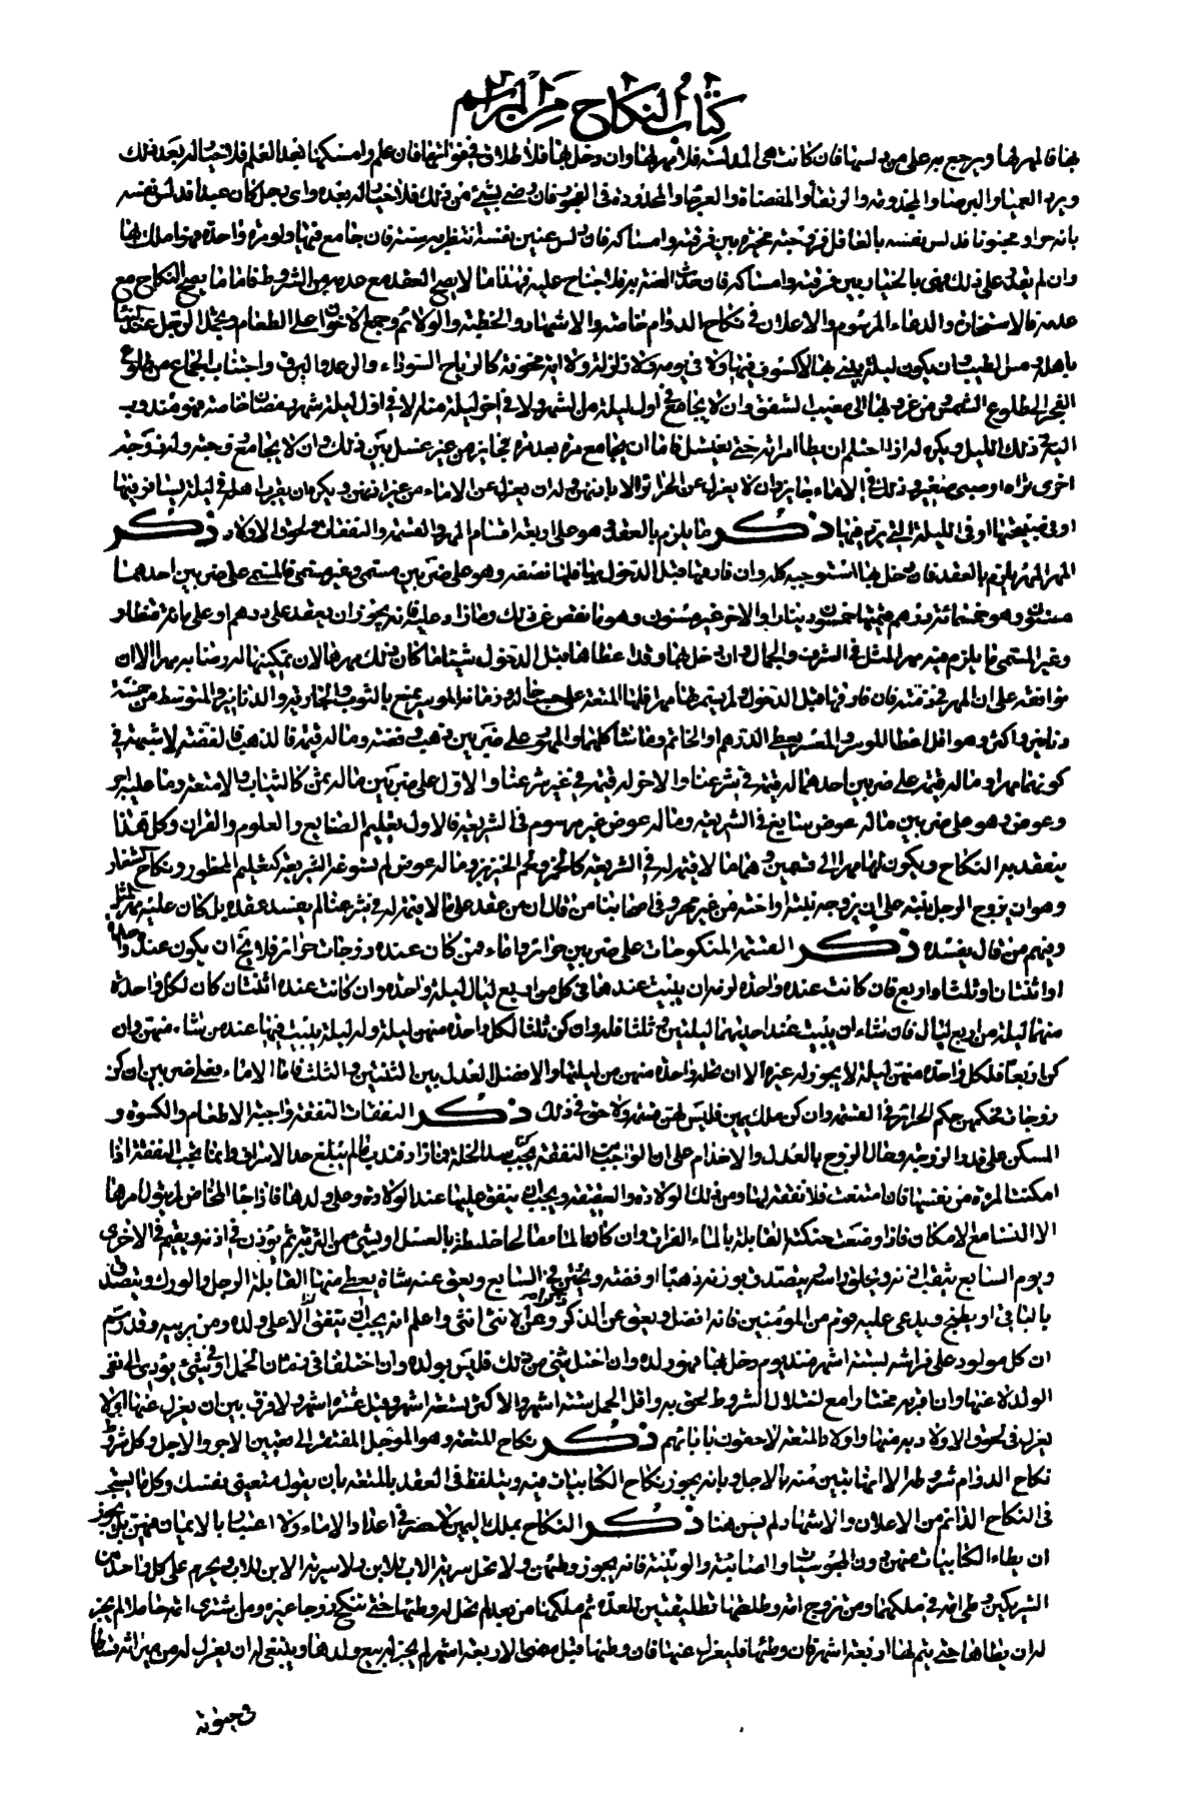 كتاب النكاح من المراسم
بها فالمهر لها ويرجع به على من دلسها فان كانت هي المدلسة فلا مهر لها وان دخل بها فلا طلاق في فراقها فان علم وامسكها بعد العلم فلا خيار له بعد ذلك
ويرد العمياء والبرصاء والمجذومة والرتقاء والمفضاة والعرجاء والمحدودة في الفجور فان رضي بشيء من ذلك فلا خيار له بعده واي رجل كان عبدا فدلس نفسه
بانه حر او مجنونا فدلس نفسه بالعاقل فزوجته مخيرة بين فرقته وامساكه فان دلس عنين نفسه انتظر به سنة فان جامع فيها ولو مرة واحدة فهو املك بها
وان لم يقدر على ذلك فهي بالخيار بين فرقته وامساكه فان حدث العنة به فلا جناح عليه فهذا ما لا يصح العقد مع عدمه من الشروط فاما ما يصح النكاح مع
عدمه فالاستخارة والدعاء المرسوم والاعلان في نكاح الدوام خاصة والاشهاد والخطبة والولائم وجمع الاخوان على الطعام
الفجر الى طلوع الشمس ومن غروبها الى مغيب الشفق وان لا يجامع في اول ليلة من الشهر ولا في اخر ليلة منه الا في اول ليلة شهر رمضان خاصة فهو مندوب
اليه في ذلك الليل ويكره له اذا احتلم ان يطأ امرأته حتى يغتسل فاما ان يجامع مرة بعد مرة فجايز من غير غسل بين ذلك وان لا يجامع زوجته وله زوجة
اخرى تراه او صبي صغير وذلك في الاماء جايز وان لا يعزل عن الحرائر الا باذنهن وله ان يعزل عن الاماء من غير اذنهن ويكره ان يقرب اهله في ليلة يسافر فيها
او في صبيحتها او في الليلة التي يرد فيها ذكر ما يلزم بالعقد وهو على اربعة اقسام المهر والقسمة والنفقات ولحوق الاولاد ذكر
المهر المهر يلزم بالعقد فان دخل بها استوجبه كله وان فارقها قبل الدخول بها فلها نصفه وهو على ضربين مسمى وغير مسمى فالمسمى على ضربين احدهما
مسنون وهو خمسمائة درهم قيمتها خمسون دينارا والاخر غير مسنون وهو ما نقص عن ذلك وما زاد وعليه فانه يجوز ان يعقد على درهم او على مائة قنطار
وغير المسمى ما يلزم فيه مهر المثل في الشرف والجمال وان دخل بها وقد اعطاها قبل الدخول شيئا ما كان ذلك مهرها لان تمكينها له رضا به مهرا الا ان
توافقه على ان المهر في ذمته فان فارقها قبل الدخول ولم يسم لها مهرا فلها المتعة على حسب حاله وزمانه الموسر يمتع بالثوب والجارية والدنانير والمتوسط من خمسة
دنانير واكثر وهو اقل عطاء الموسر والمعسر يعطي الدرهم او الخاتم وما شاكلهما والمهور على ضربين ذهب وفضة وما له قيمة فالذهب والفضة لا شبهة في
كونهما مهرا وما له قيمة على ضربين احدهما له قيمة في شرعنا والاخر له قيمة في غير شرعنا والاول على ضربين ما له ثمن كالثياب والامتعة وما عليه اجر
وعوض وهو على ضربين ما له عوض سايغ في الشريعة وما له عوض غير مرسوم في الشريعة فالاول تعليم الصنايع والعلوم والقران وكل هذا
ينعقد به النكاح ويكون مهرا
وهو ان يزوج الرجل بنته على ان يزوجه بنته او اخته من غير مهر وفي اصحابنا من قال ان من عقد على ما لا قيمة له في شرعنا لم يفسد عقده بل كان عليه مهر المثل
ومنهم من قال يفسده ذكر القسمة المنكوحات على ضربين حرائر واماء فمن كان عنده زوجات حرائر فلا يخلو ان يكون عنده واحدة
او اثنتان او ثلث او اربع فان كانت عنده واحدة لزمه ان يبيت عندها في كل اربع ليال ليلة واحدة وان كانت عنده اثنتان كان لكل واحدة
منهما ليلة من اربع ليال فان شاء ان يبيت عند احديهما ليلتين او ثلثا فله وان كن ثلثا لكل واحدة منهن ليلة وله ليلة يبيت فيها عند من شاء منهن وان
كن اربعا فلكل واحدة منهن ليلة لا يجوز له غيرها الا ان تحله واحدة منهن من ليلتها والافضل العدل بين الثنتين والثلث فاما الاماء فعلى ضربين ان كن
زوجات فحكمهن حكم الحرائر في القسمة وان كن ملك يمين فليس لهن قسمة ولا حق في ذلك ذكر النفقات النفقة واجبة الاطعام والكسوة و
المسكن على قدر الزوجة وحال الزوج بالعدل والاخدام على ان الواجب النفقة يجب سد الخلة فما زاد فندب ما لم يبلغ حد الاسراف وانما يجب النفقة اذا
امكنت المرأة من نفسها فان امتنعت فلا نفقة لها ومن ذلك الولادة والعقيقة ويجب ان ينفق عليها عند الولادة وعلى ولدها فاذا جاء المخاض لم يتول امرها
الا النساء مع الامكان فاذا وضعت حنكته القابلة بالماء الفرات وان كان الماء مالحا خلطته بالعسل او بشيء من التربة ثم يؤذن في اذنه ويقيم في الاخرى
ويوم السابع يثقب اذنه ويحلق راسه ويتصدق بوزنه ذهبا او فضة ويختن في السابع ويعق عنه بشاة يعطي منها القابلة الرجل والورك ويتصدق
بالباقي او يطبخ ويدعى عليه قوم من المؤمنين فانه افضل ويعق عن الذكر ذكرا وعن الانثى انثى واعلم انه يجب ان ينفق على ولده ومن يربيه وقد رسم
ان كل مولود على فراشه لستة اشهر منذ يوم دخل بها فهو ولده وان اختل شيء من ذلك فليس بولده
الولد لاعنها
واقل الحمل ستة اشهر والاكثر تسعة اشهر وقيل عشرة اشهر ولا فرق بين ان يعزل عنها او لا
يعزل في لحوق الاولاد به منها واولاد المتعة لاحقون بابائهم ذكر نكاح المتعة وهو المؤجل المفتقر الى تعيين الاجر والاجل وكل شروط
نكاح الدوام شروطه الا انها تبين منه بالاجل وبانه يجوز نكاح الكتابيات فيه ويتلفظ في العقد بالمتعة بان يقول متعيني نفسك وكل ما يستحب
في النكاح الدائم من الاعلان والاشهاد لم يسن هنا ذكر النكاح بملك اليمين لا حصر في اعداد الاماء ولا اعتبار بالايمان فيهن بل يجوز
ان يطاء الكتابيات منهن دون المجوسيات والصابئة والوثنية فانه يجوز وطئهن ولا تحل سرية الاب للابن ولا سرية الابن للاب ويحرم على كل واحد من
الشريكين وطي امة في ملكهما ومن تزوج امة وطلقها تطليقتين للعدة ثم ملكها من بعد لم تحل له وطئها حتى تنكح زوجا غيره ومن اشترى امة حاملا لم يجز
له ان يطأها حتى يتم لها اربعة اشهر فان وطئها فليعزل عنها فان وطئها قبل مضي الاربعة اشهر لم يجز له بيع ولدها وينبغي له ان يعزل له من ميراثه قسطا
في حيوته